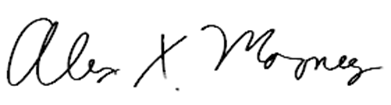 Alex X. Mayney